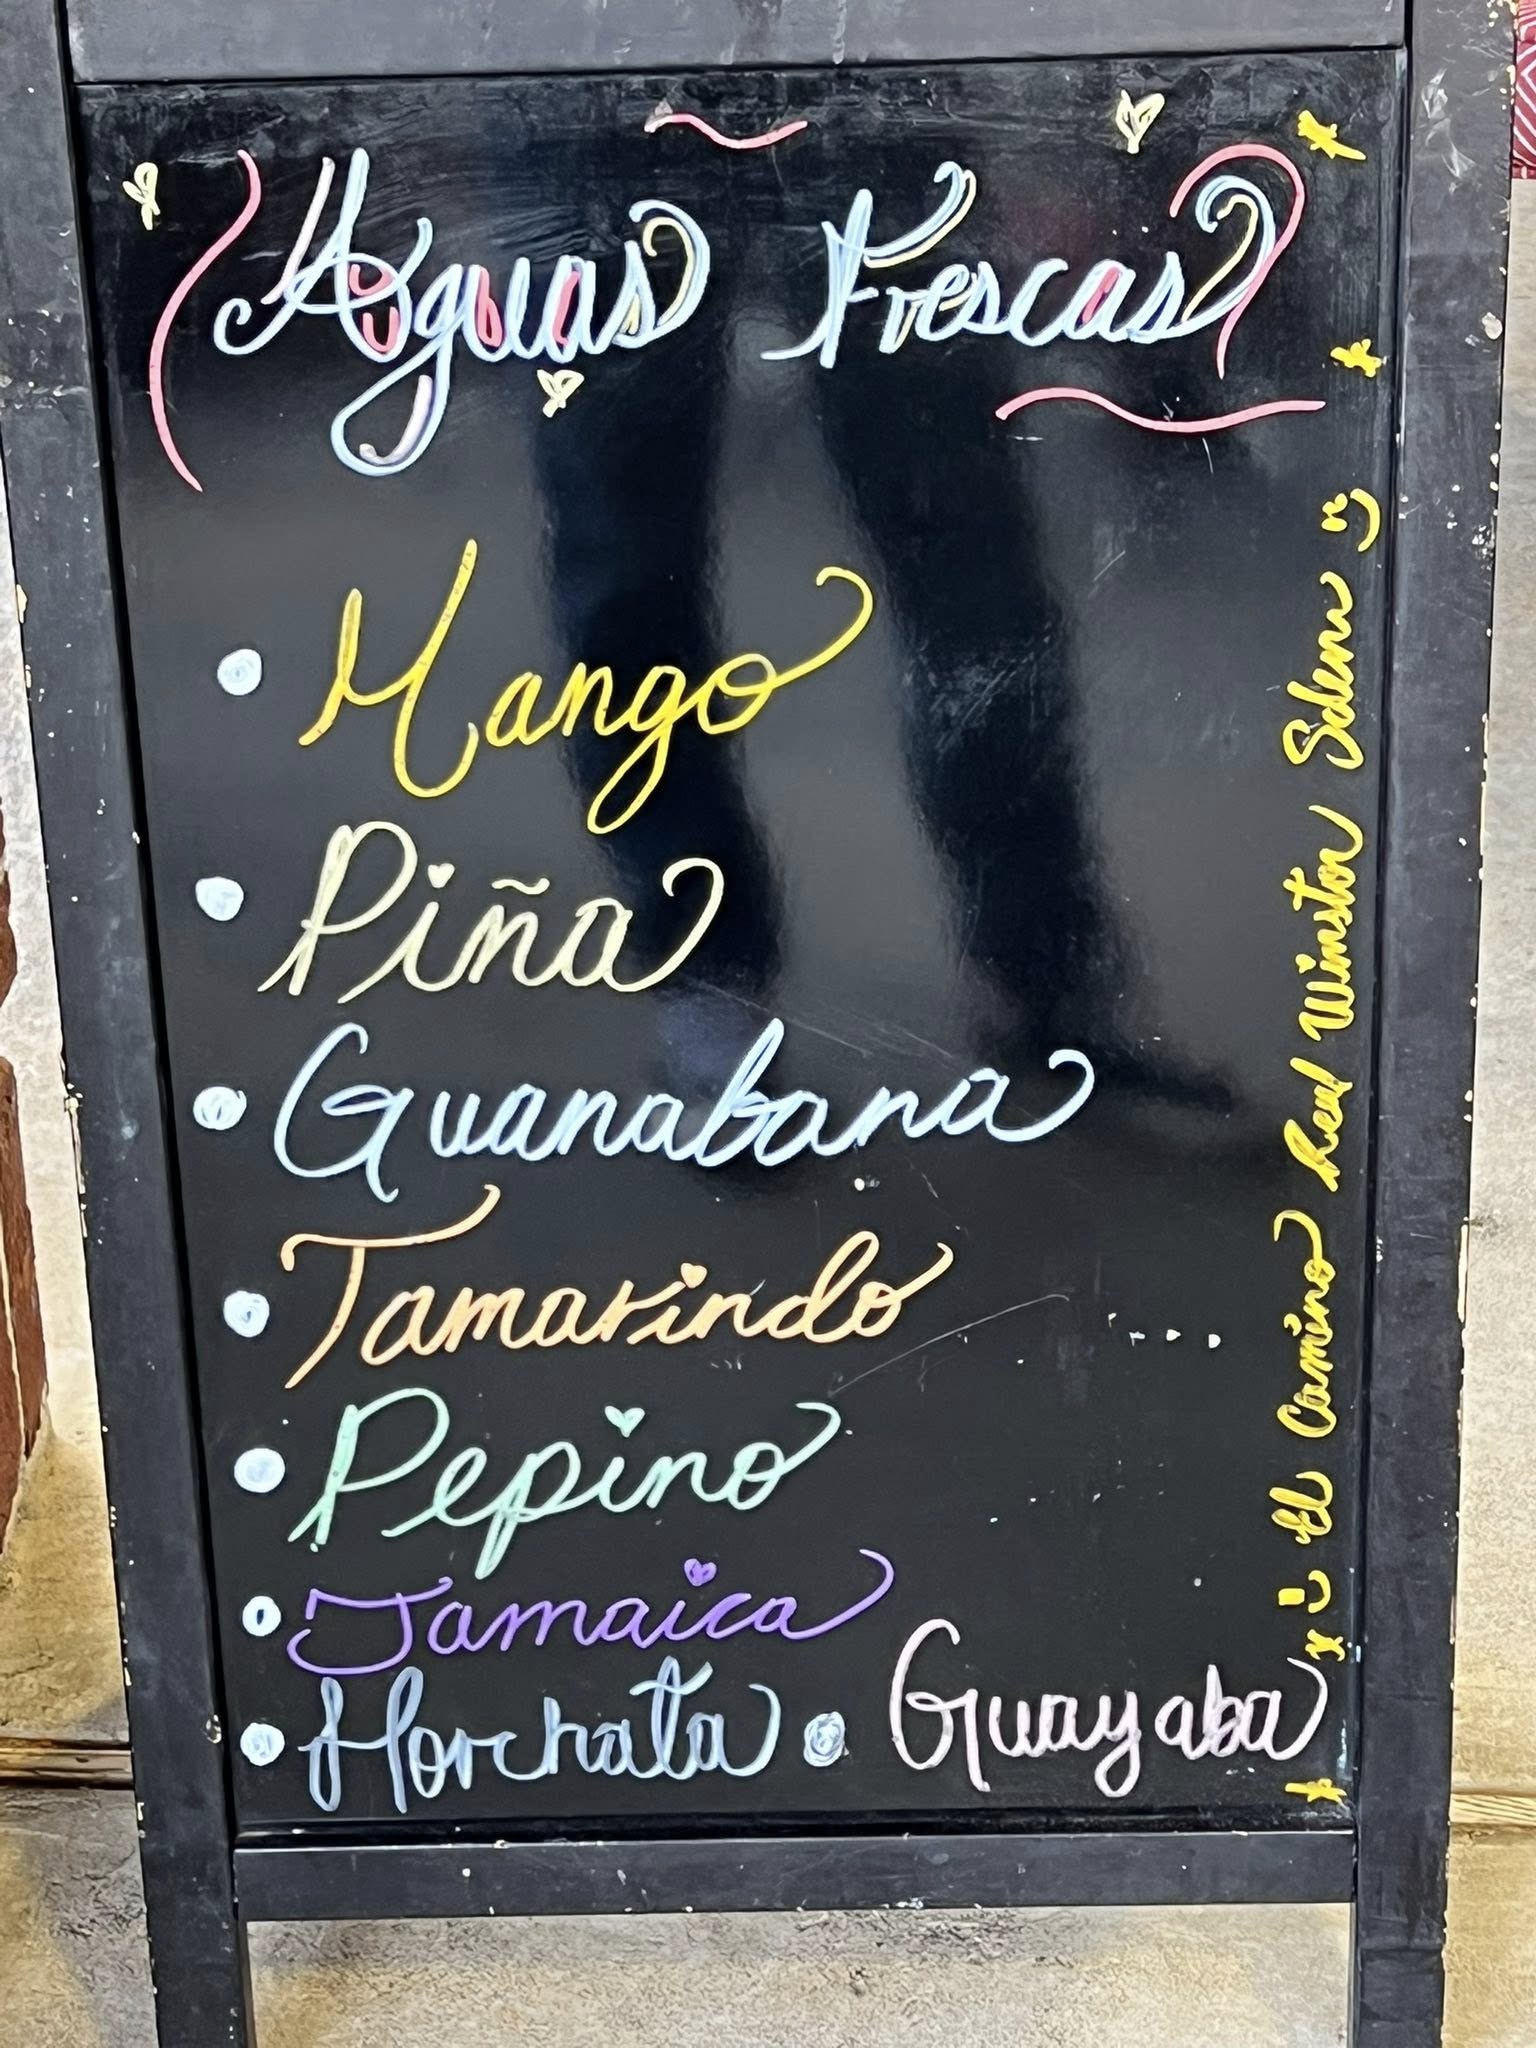 Aguas Frescas
• Mango
• Piña
• Guanabana
• Tamarindo
• Pepino
• Jamaica
• Horchata • Guayaba
El Camino Real Winston Salem